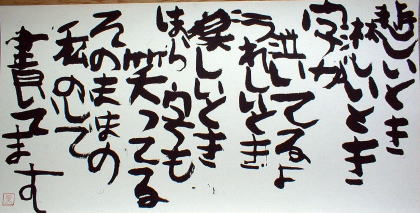 悲しいとき
淋しいとき
字が
泣いてるよ
うれしいとき
楽しいとき
ほら字も
笑ってる
そのままの
私の心で
書いてます